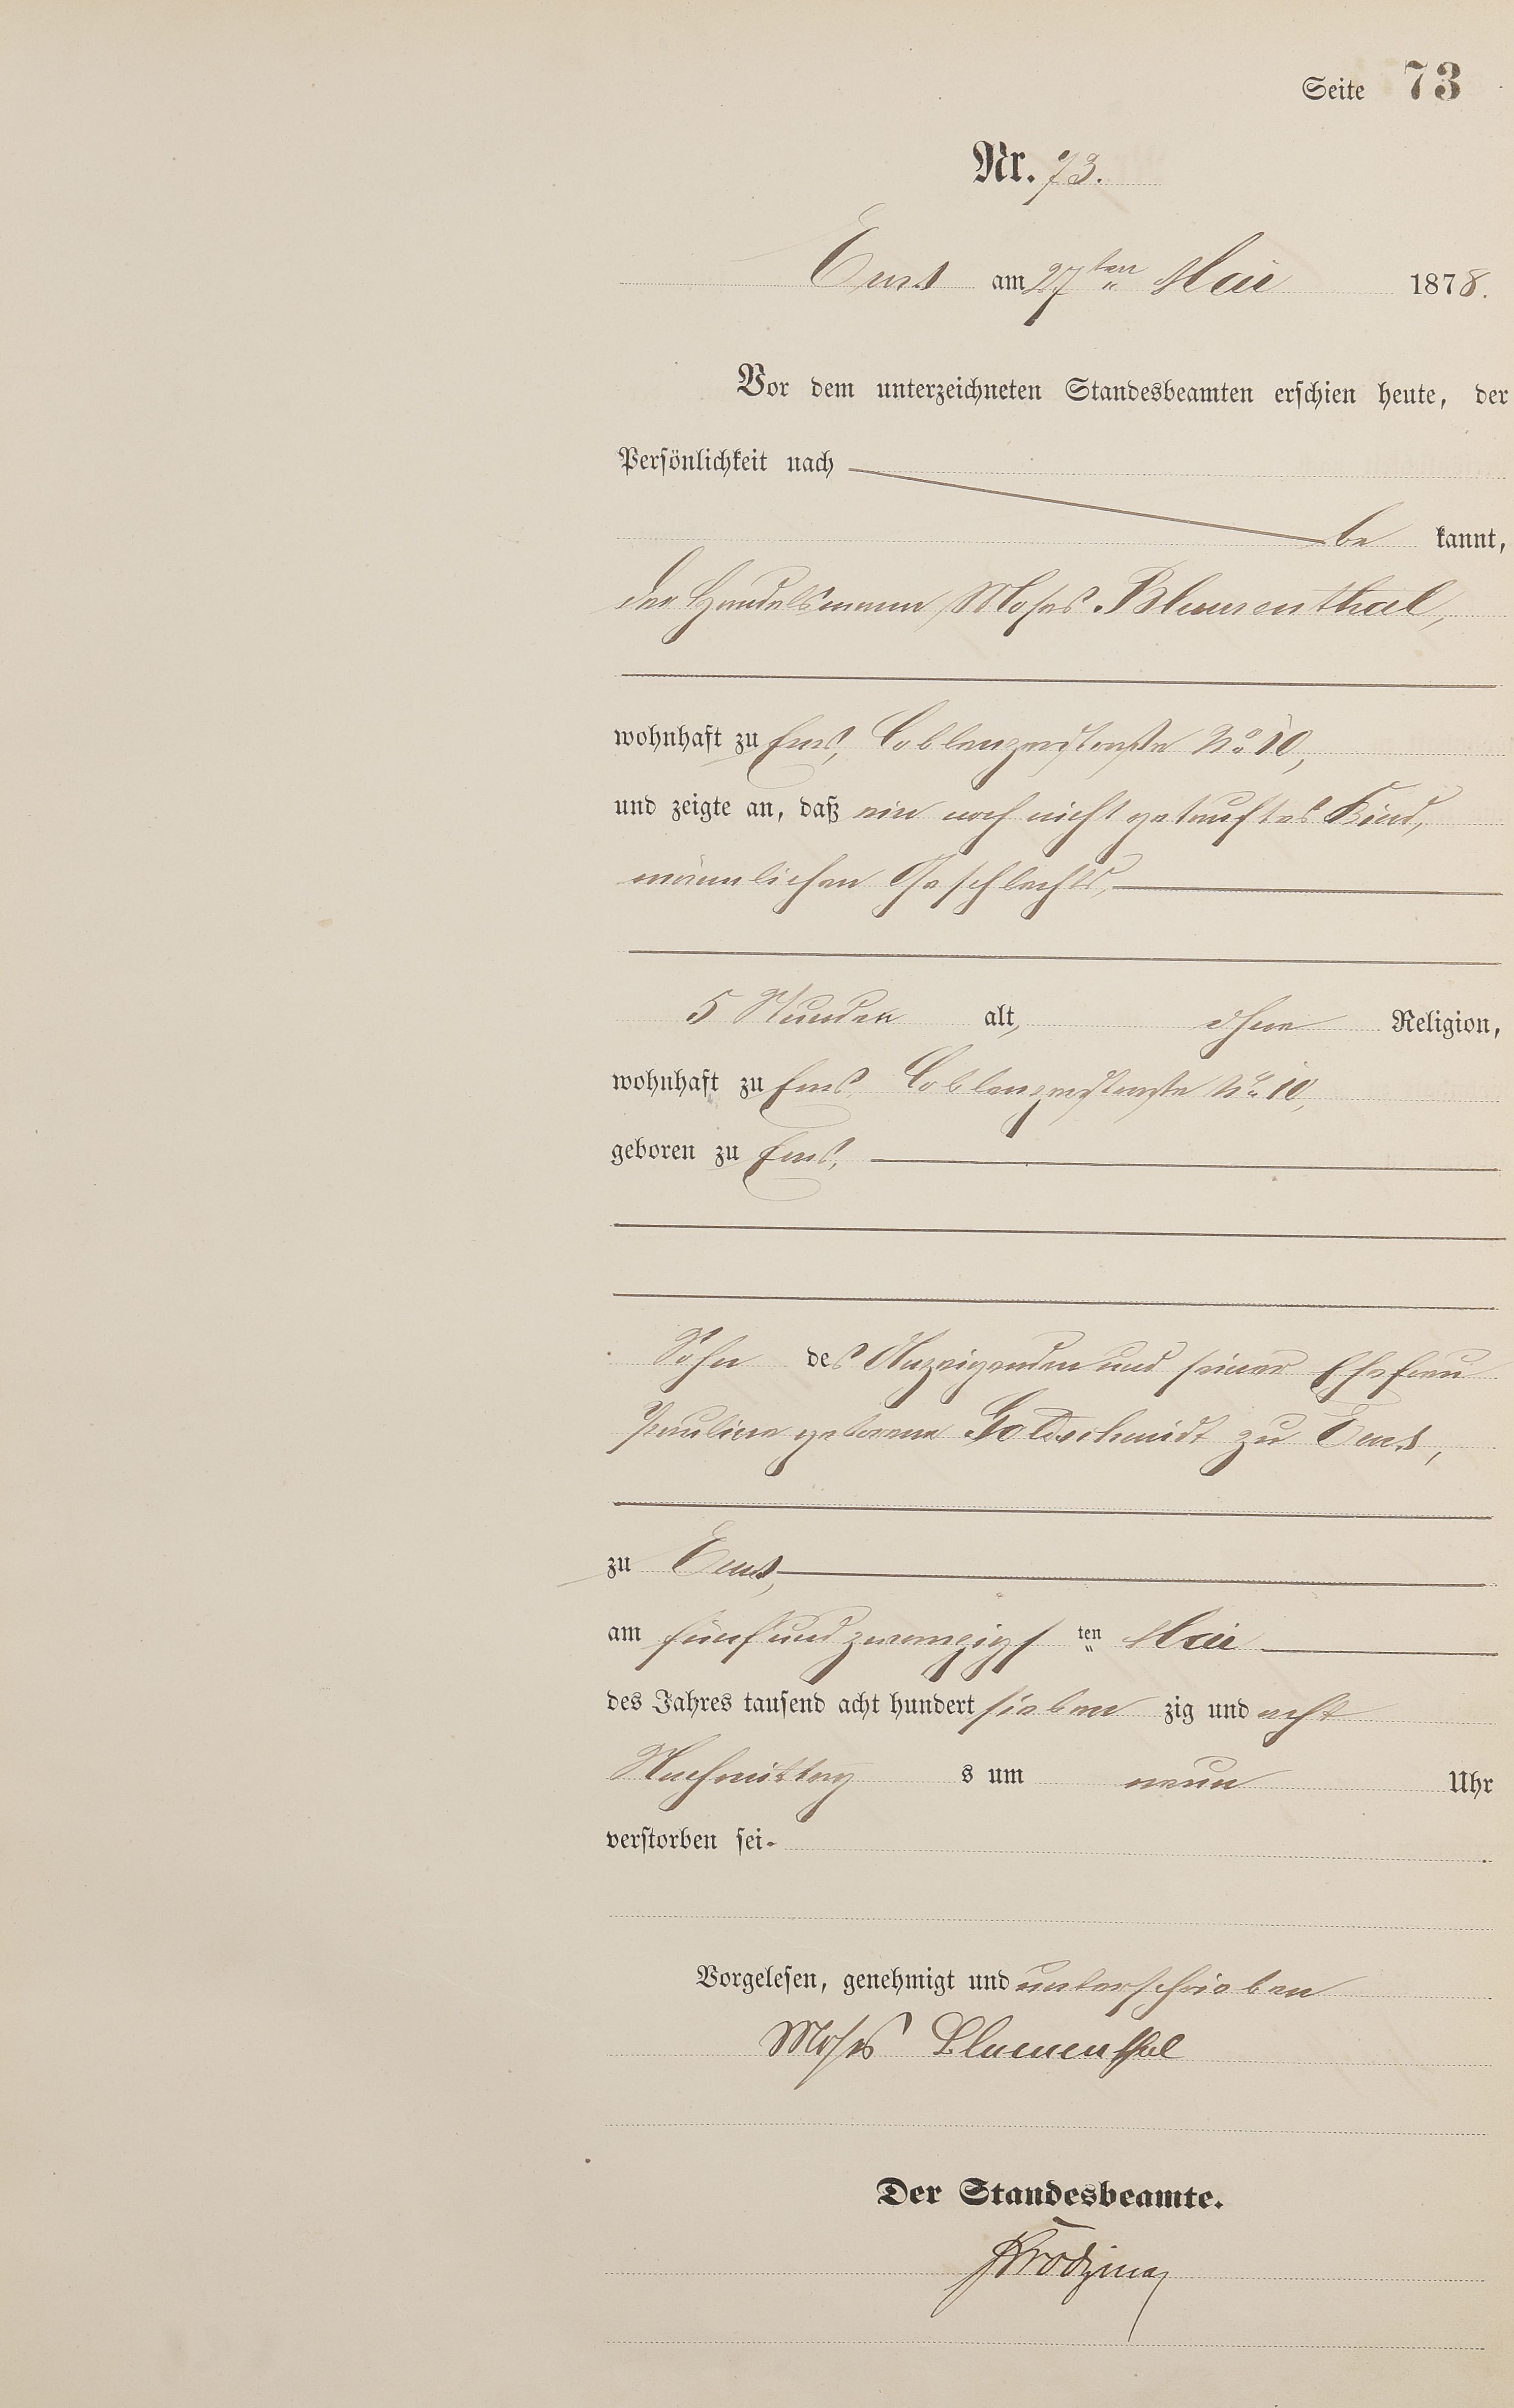 Seite 73
Nr. 73.
Ems am 27ten Mai 1878.
Vor dem unterzeichneten Standesbeamten erschien heute, der
Persönlichkeit nach
be kannt,
der Handelsmann Moses Blumenthal,
wohnhaft zu Ems, Coblenzerstraße No 10,
und zeigte an, daß ein noch nicht getauftes Kind,
männlichen Geschlechts,
5 Stunden alt, ohne Religion,
wohnhaft zu Ems, Coblenzerstraße No 10,
geboren zu Ems,
Sohn des Anzeigenden und seiner Ehefrau
Pauline geborene Goldschmidt zu Ems,
zu Ems,
am fünfundzwanzigs ten Mai
des Jahres tausend acht hundert sieben zig und acht
Nachmittag s um neun Uhr
verstorben sei.
Vorgelesen, genehmigt und unterschrieben
Moses Blumenthal
Der Standesbeamte.